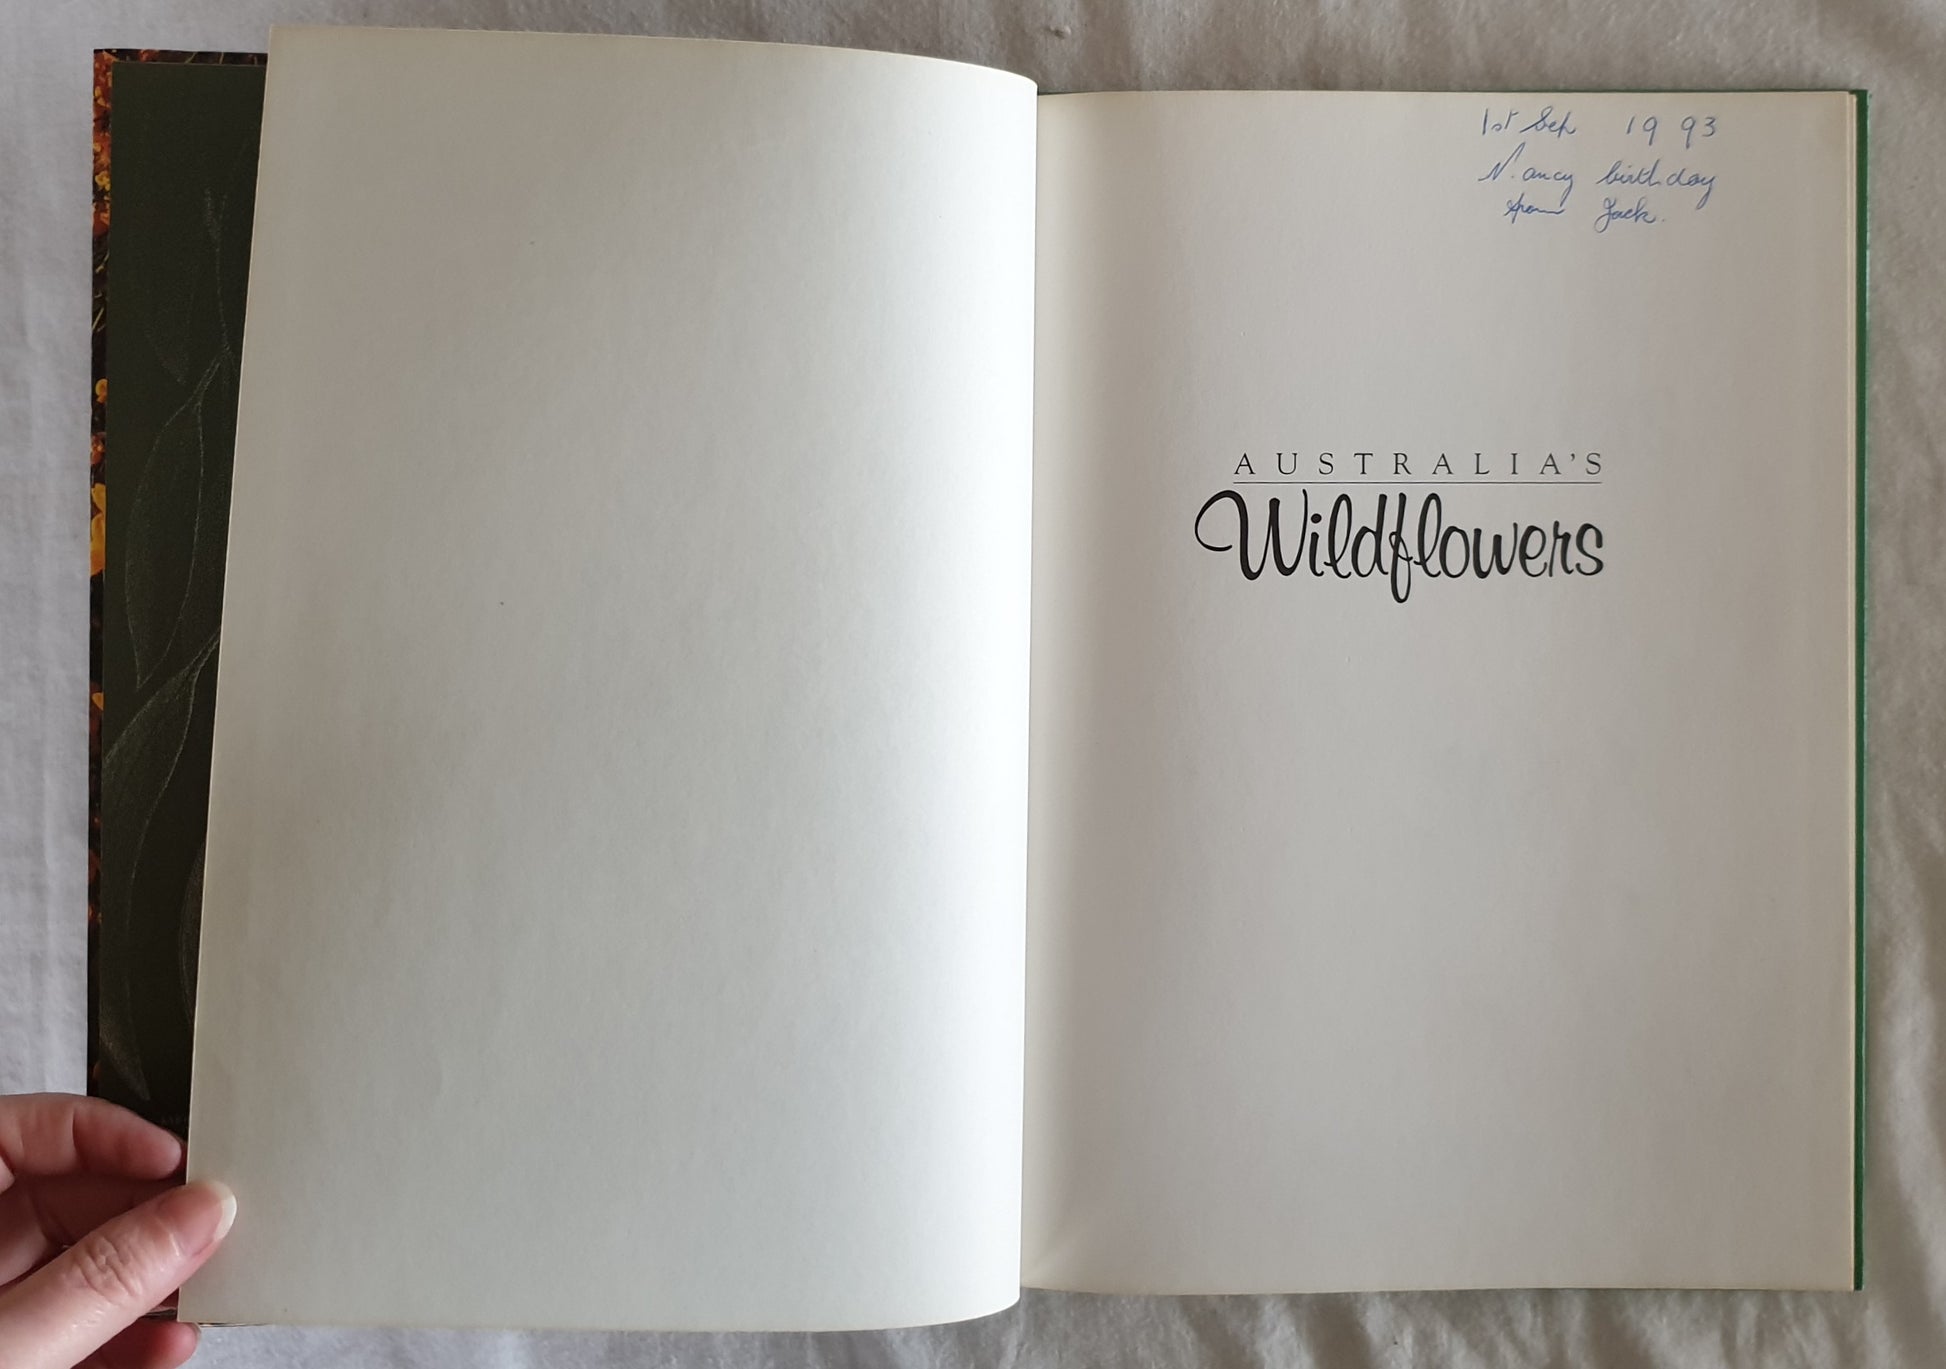 1st Sep 1993
N.ancy birthday
from Jack.
AUSTRALIA'S
Wildflowers